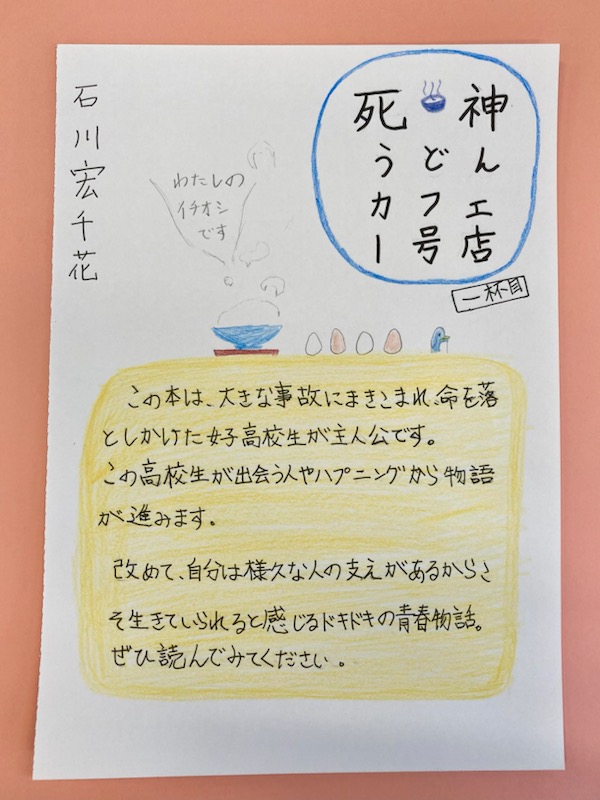 死神
うどん
カフェ
一号店
一杯目
石川宏千花
わたしの
イチオシ
です
この本は、大きな事故にまきこまれ、命を落
としかけた女子高校生が主人公です。
この高校生が出会う人やハプニングから物語
が進みます。
改めて、自分は様々な人の支えがあるからこ
そ生きていられると感じるドキドキの青春物語。
ぜひ読んでみてください。